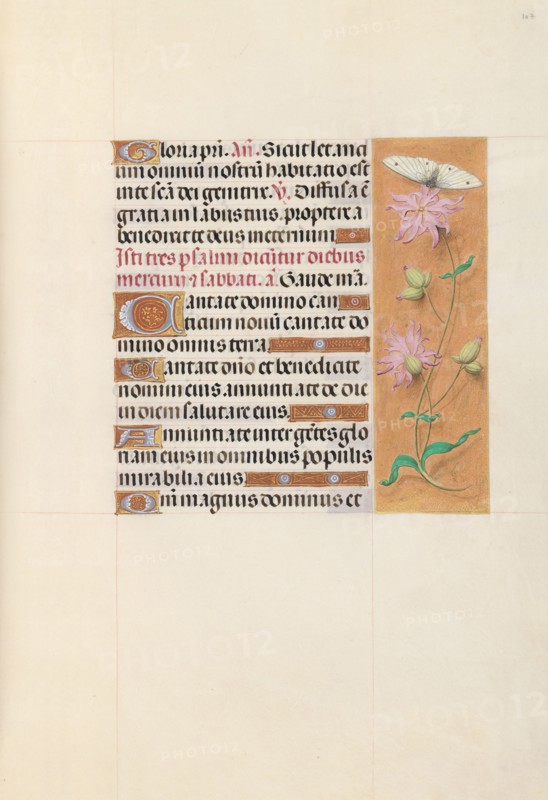 Gloria pri. An. Sicut letanci
um omniū nostrū habitatio est
in te scā dei genitrix. V. Diffusa ē
gratia in labiis tuis. propterea
benedixit te deus in eternum
Isti tres psalmi dicūtur diebus
mercurii ⁊ sabbati. a. Gaude m̄a.
Cantate domino can
ticum nouū cantate do
mino omnis terra
Cantate dn̄o et benedicite
nomini eius annuntiate de die
in diem salutare eius
Annuntiate inter gētes glo
riam eius in omnibus populis
mirabilia eius
Qm̄ magnus dominus et
PHOTO12